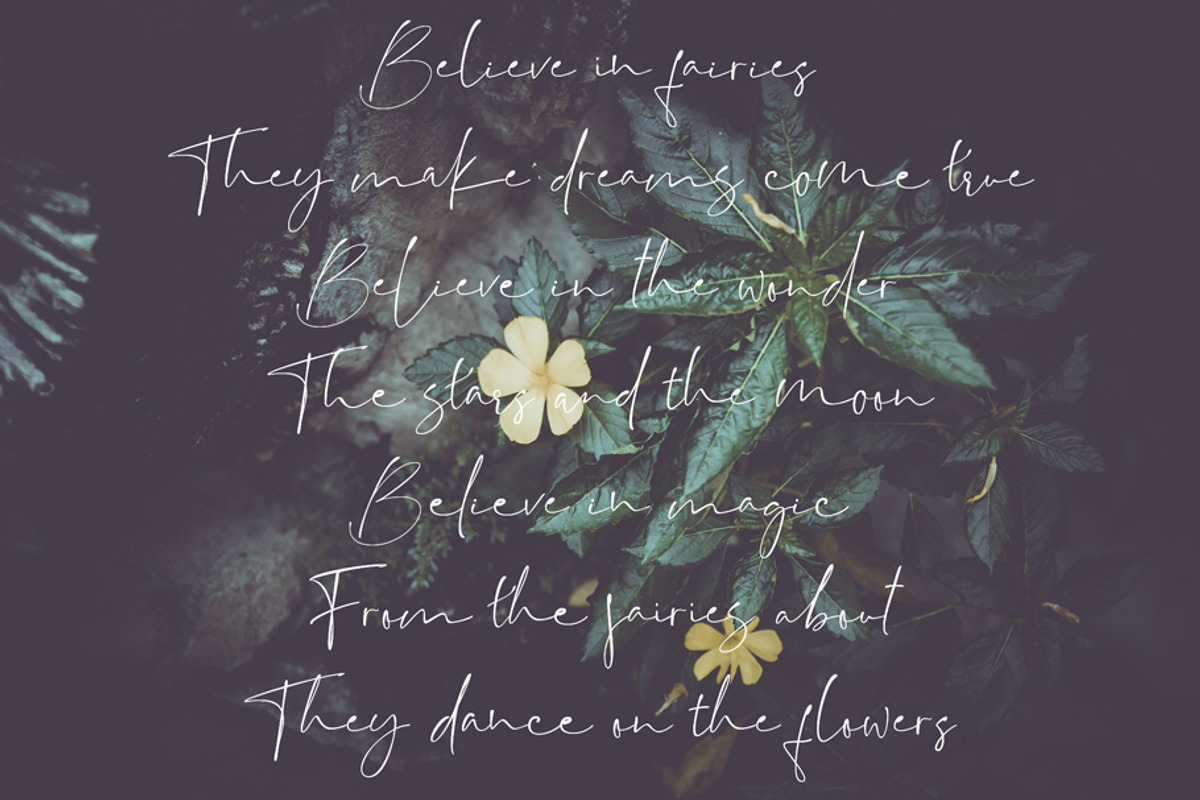 Believe in fairies
They make dreams come true
Believe in the wonder
The stars and the moon
Believe in magic
From the fairies about
They dance on the flowers